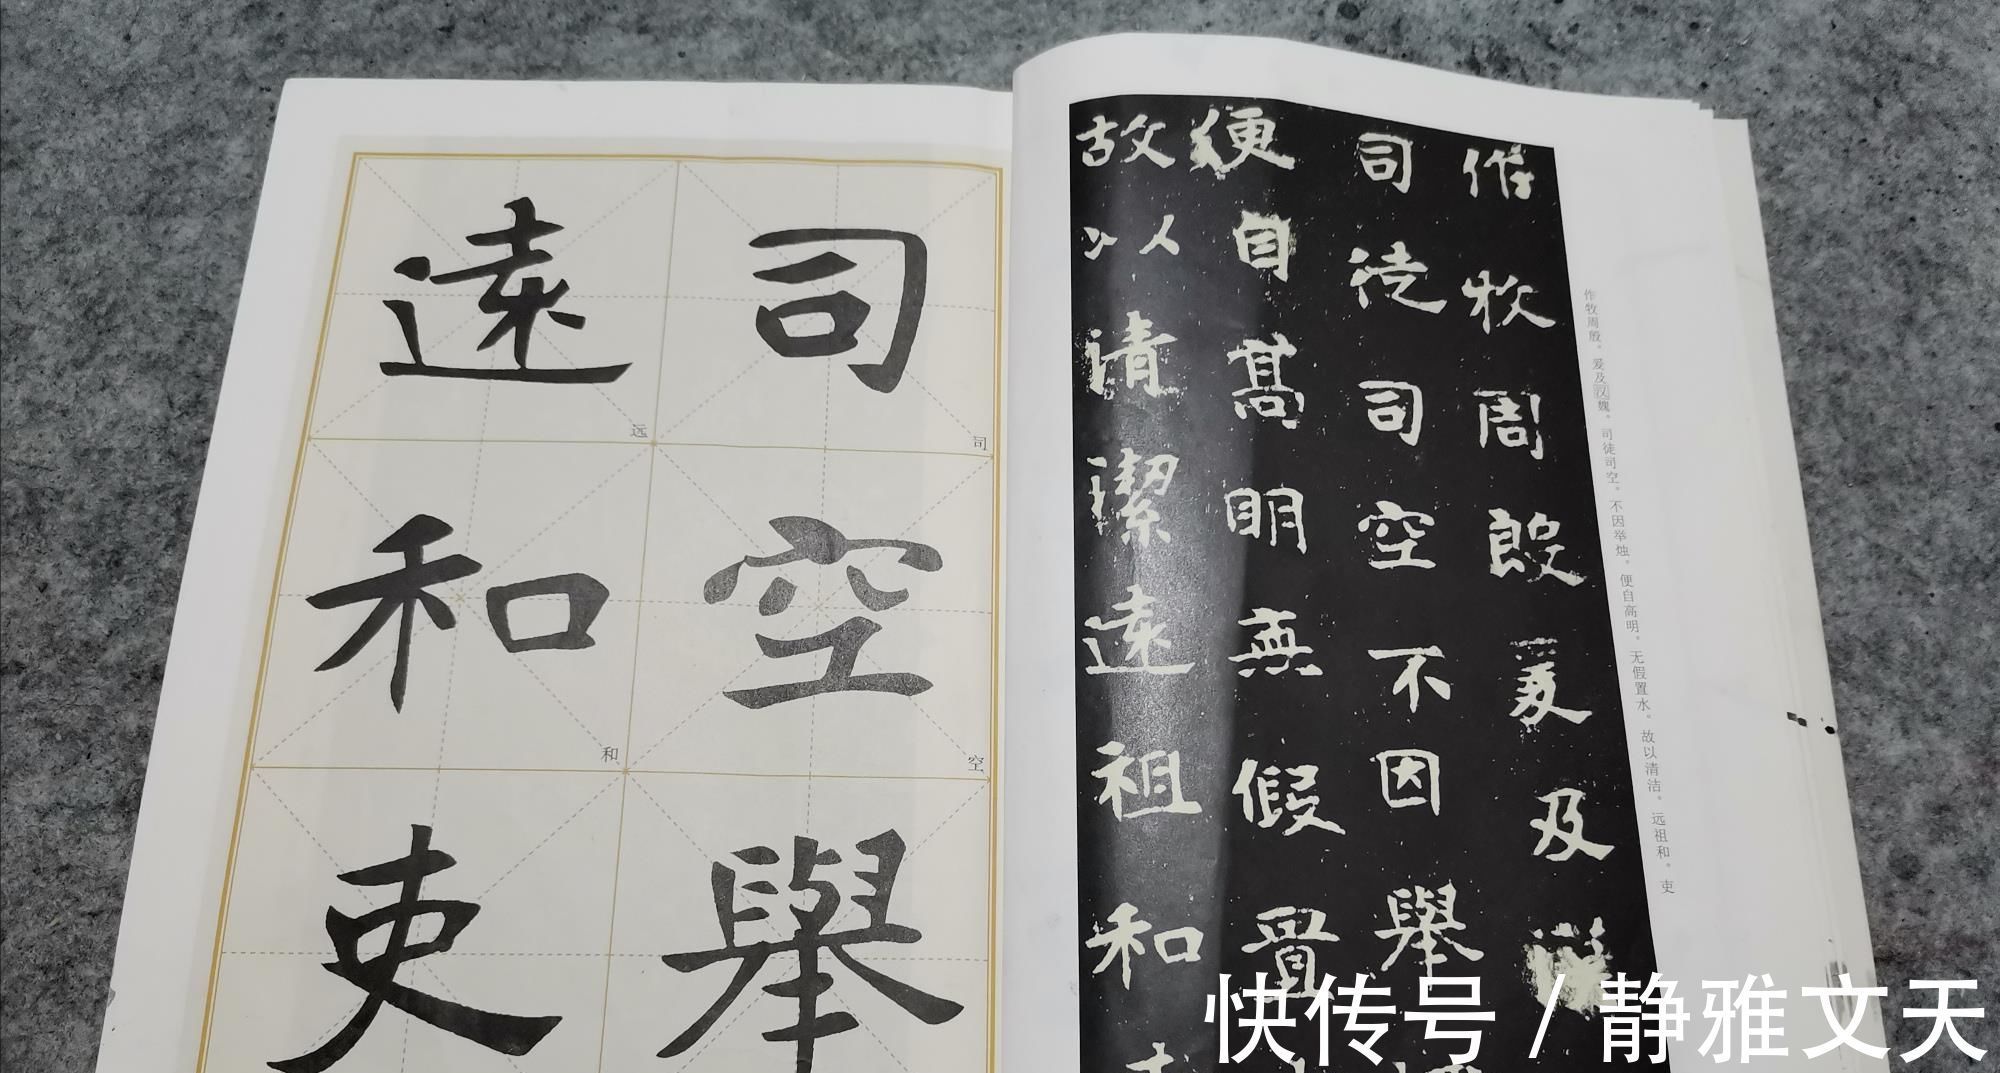 司
遠
司
远
空
和
空
和
舉
吏
作牧周殷爰及
司徒司空不因舉
便自高明無假置
故以清潔遠祖和
作牧周殷。爰及汉魏。司徒司空。不因举烛。便自高明。无假置水。故以清洁。远祖和。吏
快传号 / 静雅文天